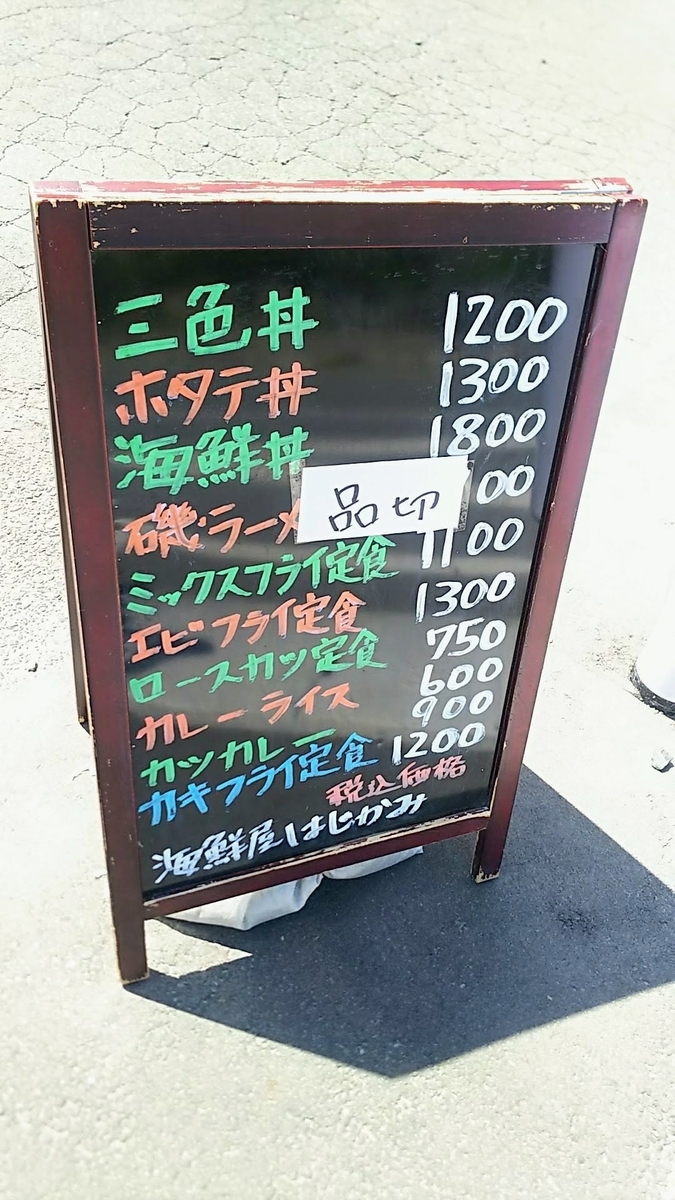 三色丼 1200
ホタテ丼 1300
海鮮丼 1800
品切
磯ラーメ 00
ミックスフライ定食 1100
エビフライ定食 1300
ロースカツ定食 750
カレーライス 600
カツカレー 900
カキフライ定食 1200
税込価格
海鮮屋はじかみ